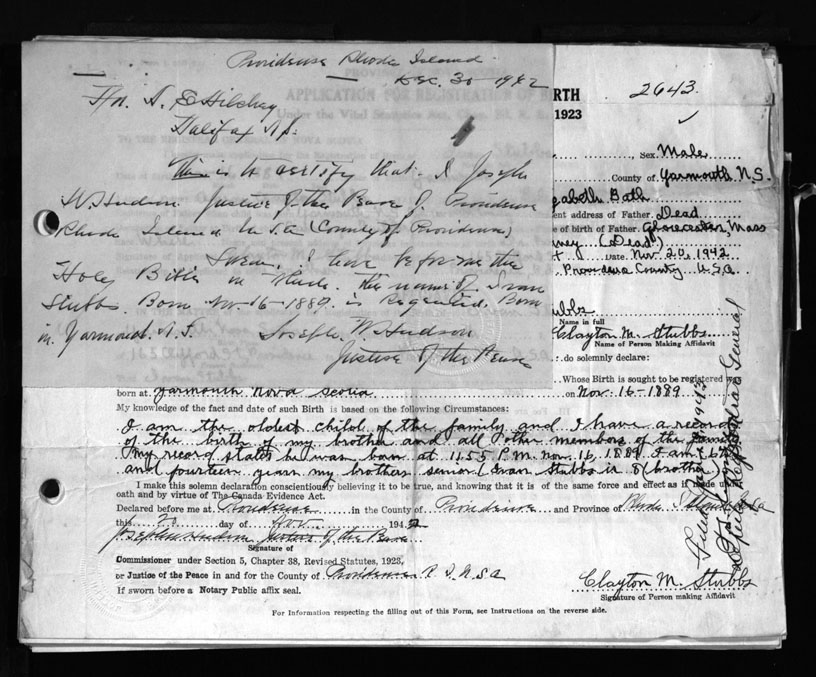 Providense Rhode Island
Dec. 30 1942
Hn. A. E Hilchey
Halifax N.S.
This is to certify that I Joseph
W. Hudson Justice of the Peace of Providense
Rhode Island U.S.A (County of Providense)
Swear. I have before me the
Holey Bible in Which the name of Ivan
Stubbs. Born Nov-16-1889. is Registed. Born
in Yarmouth. N.S. Joseph. W Hudson
Justice of the Peace
APPLICATION FOR REGISTRATION OF BIRTH
2643
Under the Vital Statistics Act, 1923
Sex Male
County of Yarmouth N.S.
zabeth Bath
ent address of Father. Dead
e of birth of Father. Gloucester, Mass
ney (Dead)
Date Nov. 20, 1942
Providense County U.S.A
Stubbs
Name in full
Clayton M. Stubbs
Name of Person Making Affidavit
do solemnly declare:
Whose Birth is sought to be registered was
born at Yarmouth Nova Scotia on Nov-16-1889
My knowledge of the fact and date of such Birth is based on the following Circumstances:
I am the oldest child of the family and I have a record
of the birth of my brother and all other members of the family
My record states he was born at 11.55 P.M. Nov. 16, 1889. I am 67
and fourteen years my brothers senior (Ivan Stubbs is brother)
I make this solemn declaration conscientiously believing it to be true, and knowing that it is of the same force and effect as if made under
oath and by virtue of The Canada Evidence Act.
Declared before me at Providense in the County of Providense and Province of Rhode Island U.S.a
this 20 day of Nov. 1942
Joseph W Hudson Justice of the Peace
Signature of
Commissioner under Section 5, Chapter 38, Revised Statutes, 1923,
or Justice of the Peace in and for the County of Providense R I U.S.A
If sworn before a Notary Public affix seal.
Clayton M. Stubbs
Signature of Person making Affidavit
For Information respecting the filling out of this Form, see Instructions on the reverse side.
Deputy Registrar General